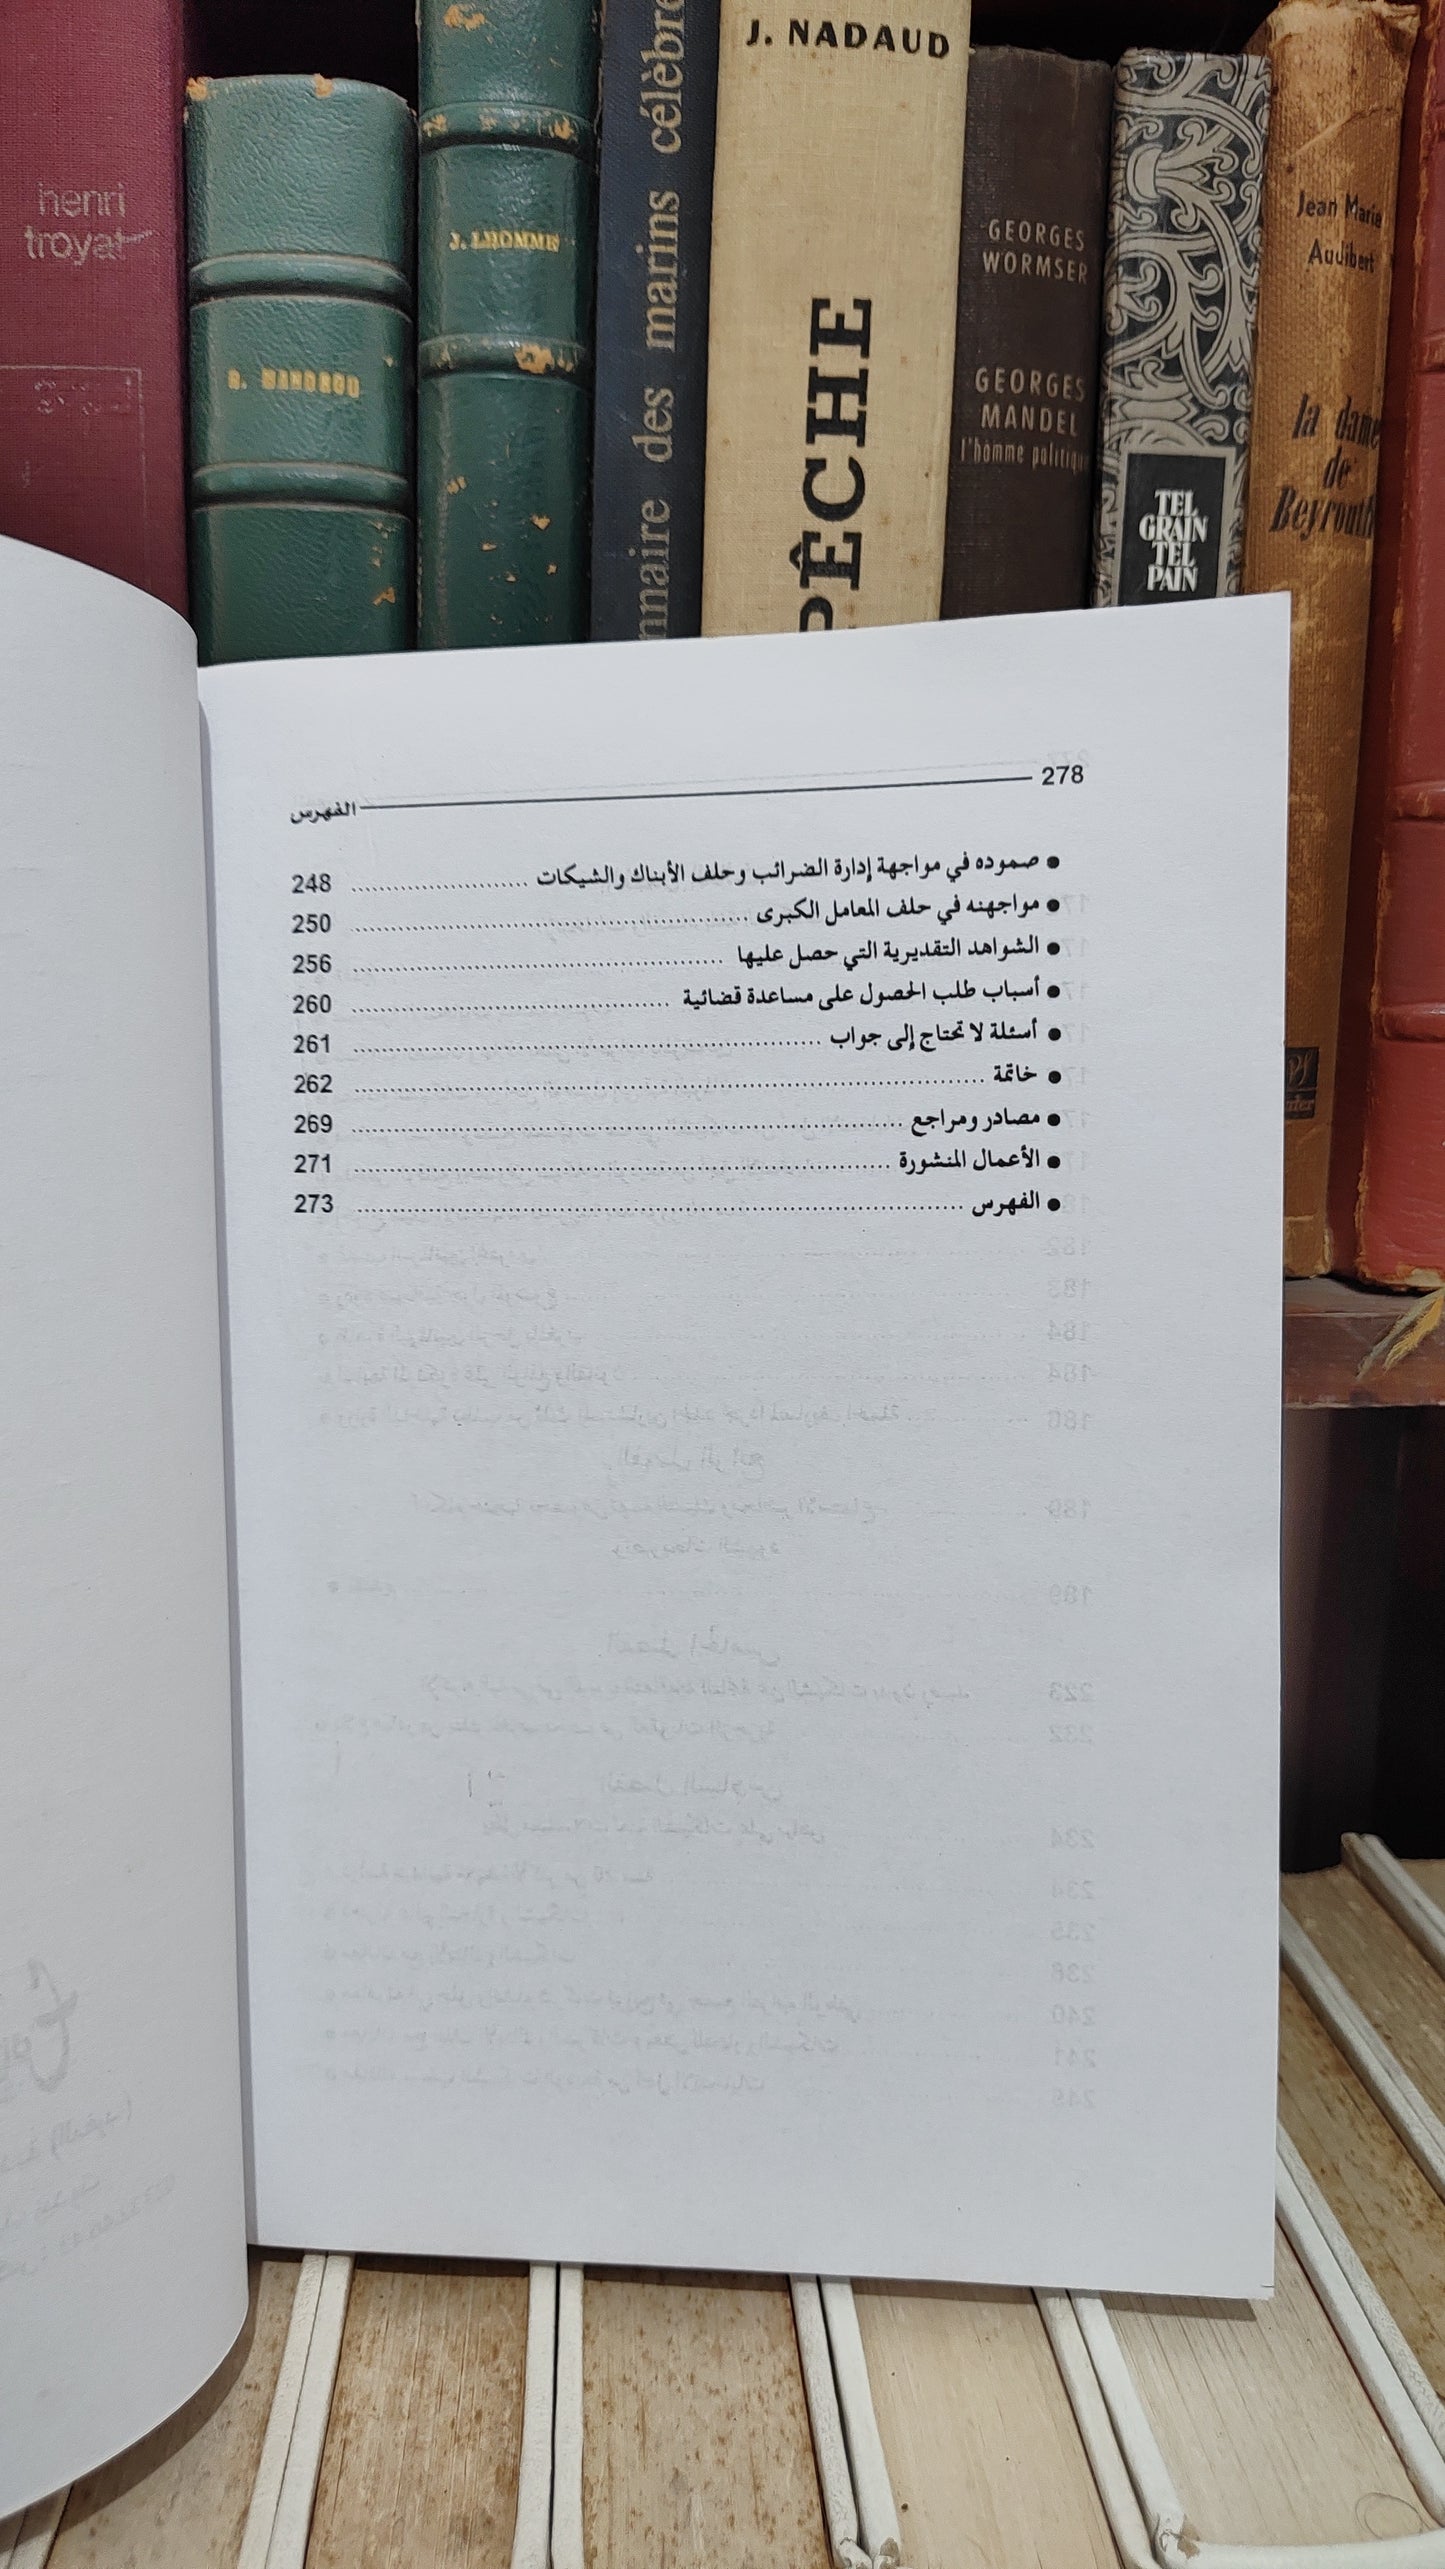 henri
troyat
J. LHOMME
nnaire des marins célèbre
J. NADAUD
PÊCHE
GEORGES
WORMSER
GEORGES
MANDEL
l'homme politique
TEL
GRAIN
TEL
PAIN
Jean Marie
Audibert
la dame
de
Beyrouth
278
الفهرس
● صموده في مواجهة إدارة الضرائب وحلف الأبناك والشيكات ........ 248
● مواجهنه في حلف المعامل الكبرى ........ 250
● الشواهد التقديرية التي حصل عليها ........ 256
● أسباب طلب الحصول على مساعدة قضائية ........ 260
● أسئلة لا تحتاج إلى جواب ........ 261
● خاتمة ........ 262
● مصادر ومراجع ........ 269
● الأعمال المنشورة ........ 271
● الفهرس ........ 273